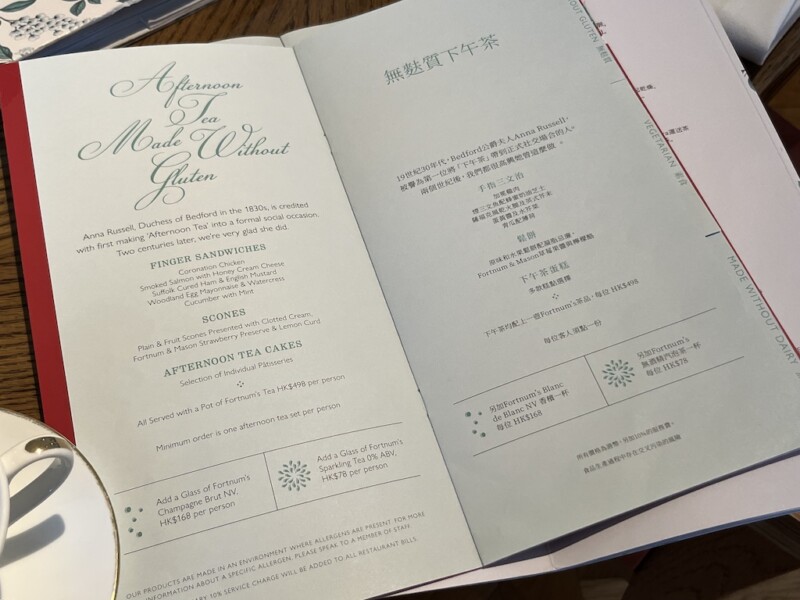 Afternoon
Tea
Made Without
Gluten
Anna Russell, Duchess of Bedford in the 1830s, is credited
with first making 'Afternoon Tea' into a formal social occasion.
Two centuries later, we're very glad she did.
FINGER SANDWICHES
Coronation Chicken
Smoked Salmon with Honey Cream Cheese
Suffolk Cured Ham & English Mustard
Woodland Egg Mayonnaise & Watercress
Cucumber with Mint
SCONES
Plain & Fruit Scones Presented with Clotted Cream,
Fortnum & Mason Strawberry Preserve & Lemon Curd
AFTERNOON TEA CAKES
Selection of Individual Pâtisseries
All Served with a Pot of Fortnum's Tea HK$498 per person
Minimum order is one afternoon tea set per person
Add a Glass of Fortnum's
Champagne Brut NV,
HK$168 per person
Add a Glass of Fortnum's
Sparkling Tea 0% ABV,
HK$78 per person
OUR PRODUCTS ARE MADE IN AN ENVIRONMENT WHERE ALLERGENS ARE PRESENT. FOR MORE
INFORMATION ABOUT A SPECIFIC ALLERGEN, PLEASE SPEAK TO A MEMBER OF STAFF.
10% SERVICE CHARGE WILL BE ADDED TO ALL RESTAURANT BILLS.
無麩質下午茶
19世紀30年代，Bedford公爵夫人Anna Russell，
被譽為第一位將「下午茶」帶到正式社交場合的人。
兩個世紀後，我們都很高興她曾這麼做。
手指三文治
加冕雞肉
煙三文魚配蜂蜜奶油芝士
薩福克風乾火腿及英式芥末
蛋黃醬及水芥菜
青瓜配薄荷
鬆餅
原味和水果鬆餅配凝脂忌廉，
Fortnum & Mason草莓果醬與檸檬酪
下午茶蛋糕
多款糕點選擇
下午茶均配上一壺Fortnum's茶品，每位 HK$498
每位客人須點一份
另加Fortnum's Blanc
de Blanc NV 香檳一杯
每位 HK$168
另加Fortnum's
無酒精汽泡茶一杯
每位 HK$78
所有價格為港幣，另加10%的服務費。
食品生產過程中存在交叉污染的風險
WITHOUT GLUTEN 無麩質
VEGETARIAN 素食
MADE WITHOUT DAIRY